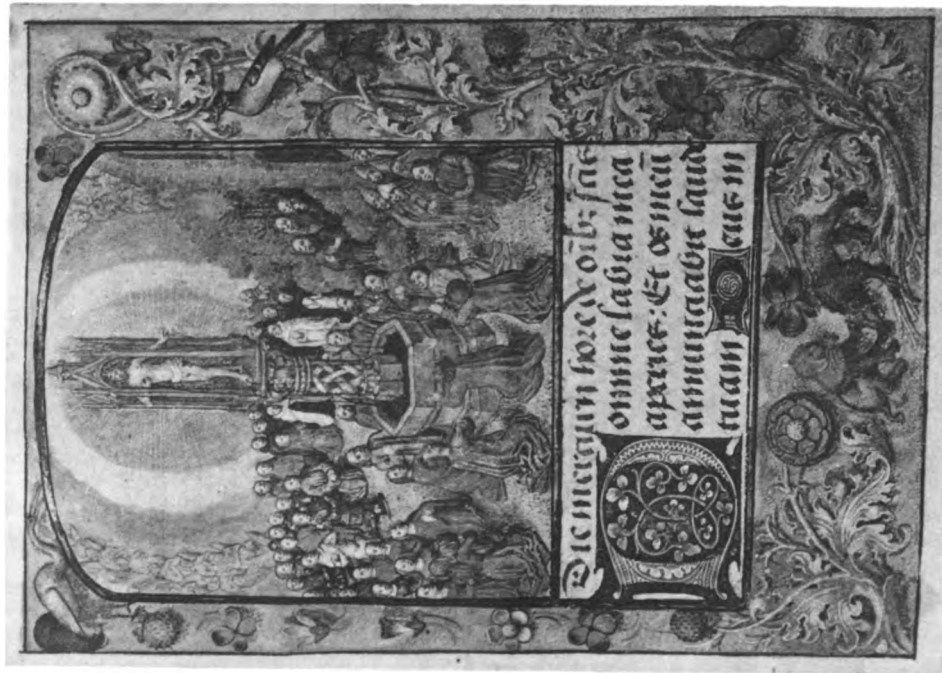 Die mercurii hore de oīb; sāc
Domine labia mea
aperies: Et os meū
annunciabit laudē
tuam Deus in